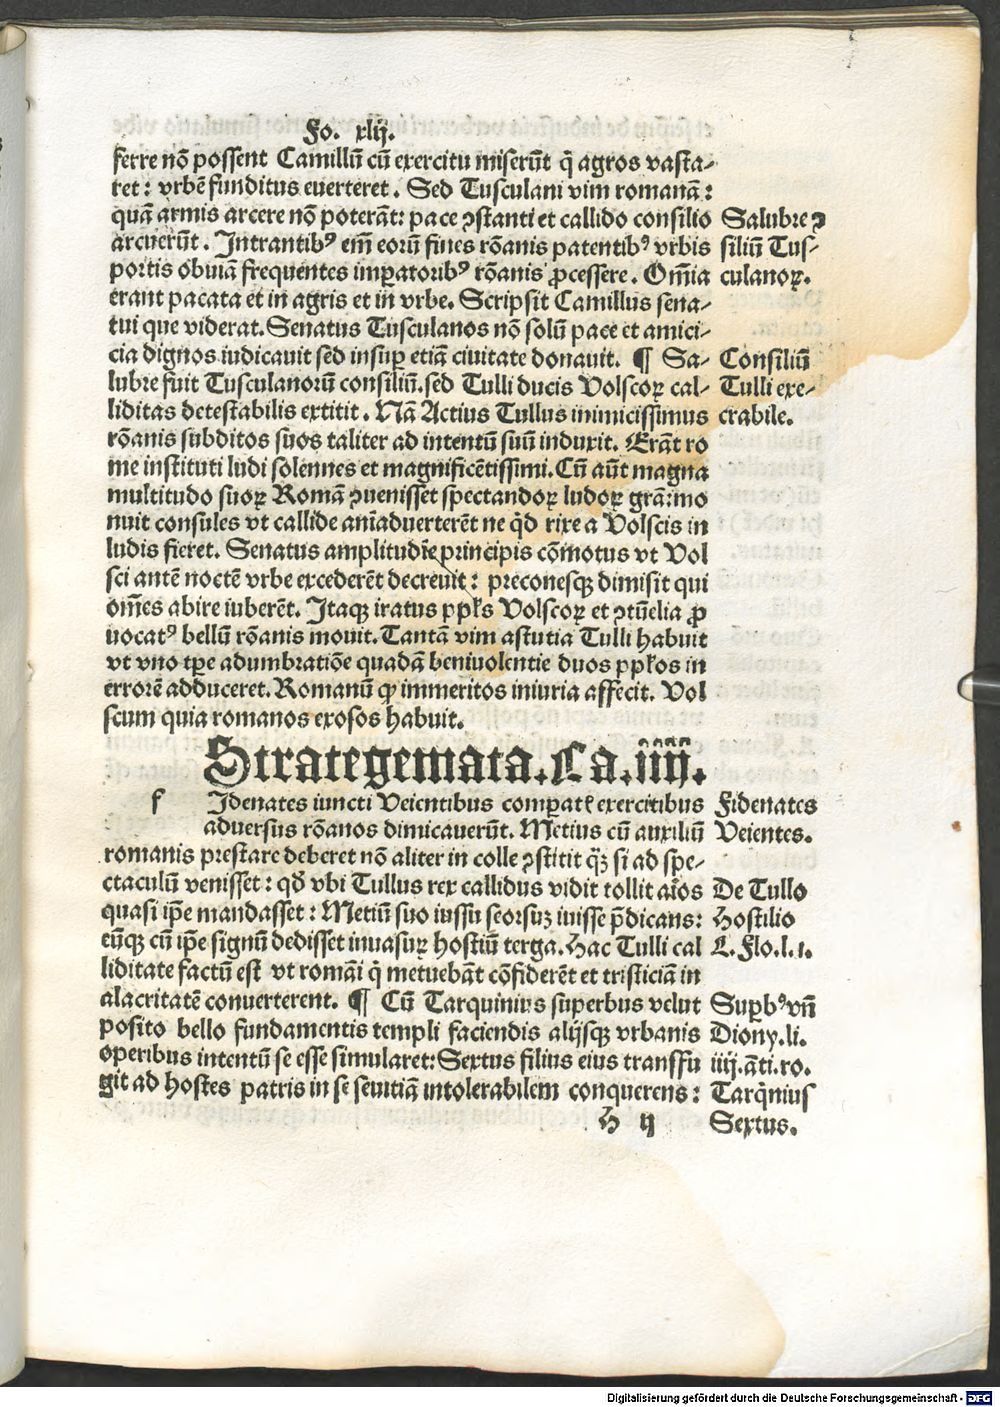 Fo. xlij.
ferre nõ possent Camillũ cũ exercitu miserũt q̃ agros vasta-
ret: vrbẽ funditus euerteret. Sed Tusculani vim romanã:
quã armis arcere nõ poterãt: pace ꝯstanti et callido consilio
arcuerũt. Intrantibꝰ em̃ eorũ fines rõanis patentibꝰ vrbis
portis obuiã frequentes imꝑatoribꝰ rõanis ꝓcessere. Om̃ia
erant pacata et in agris et in vrbe. Scripsit Camillus sena-
tui que viderat. Senatus Tusculanos nõ solũ pace et amici-
cia dignos iudicauit sed insuꝑ etiã ciuitate donauit. ¶ Sa-
lubre fuit Tusculanorũ consiliũ. sed Tulli ducis Volscoꝝ cal-
liditas detestabilis extitit. Nã Actius Tullus inimicissimus
rõanis subditos suos taliter ad intentũ suũ induxit. Erãt ro
me instituti ludi solennes et magnificẽtissimi. Cũ aũt magna
multitudo suoꝝ Romã ꝯuenisset spectandoꝝ ludoꝝ grã: mo
nuit consules vt callide anĩaduerterẽt ne q̃d rixe a Volscis in
ludis fieret. Senatus amplitudĩe principis cõmotus vt Vol
sci antẽ noctẽ vrbe excederẽt decreuit: preconesqꝫ dimisit qui
om̃es abire iuberẽt. Itaqꝫ iratus ppl̃s Volscoꝝ et ꝯtũelia ꝓ
uocatꝰ bellũ rõanis mouit. Tantã vim astutia Tulli habuit
vt vno tꝑe adumbratiõe quadã beniuolentie duos ppl̃os in
errorẽ adduceret. Romanũ qꝙ immeritos iniuria affecit. Vol
scum quia romanos exosos habuit.
Salubre ꝯ
siliũ Tus-
culanoꝝ.
Consiliũ
Tulli exe-
crabile.
Strategemata. Ca. iiij.
f Idenates iuncti Veientibus comꝑatĩ exercitibus
aduersus rõanos dimicauerũt. Metius cũ auxiliũ
romanis prestare deberet nõ aliter in colle ꝯstitit q̃ꝫ si ad spe-
ctaculũ venisset: qð vbi Tullus rex callidus vidit tollit aĩos
quasi ip̃e mandasset: Metiũ suo iussu seorsuꝫ iuisse p̃dicans:
eũqꝫ cũ ip̃e signũ dedisset inuasuꝝ hostiũ terga. Hac Tulli cal
liditate factũ est vt romãi q̃ metuebãt cõfiderẽt et tristiciã in
alacritatẽ conuerterent. ¶ Cũ Tarquinius superbus velut
posito bello fundamentis templi faciendis alijsqꝫ vrbanis
operibus intentũ se esse simularet: Sextus filius eius transfu
git ad hostes patris in se seuitiã intolerabilem conquerens:
H ij
Fidenates
Veientes.
De Tullo
Hostilio
L. Flo. l. 1.
Suꝑbꝰ vñ
Diony. li.
iiij. ãti. ro.
Tarq̃nius
Sextus.
Digitalisierung gefördert durch die Deutsche Forschungsgemeinschaft - DFG